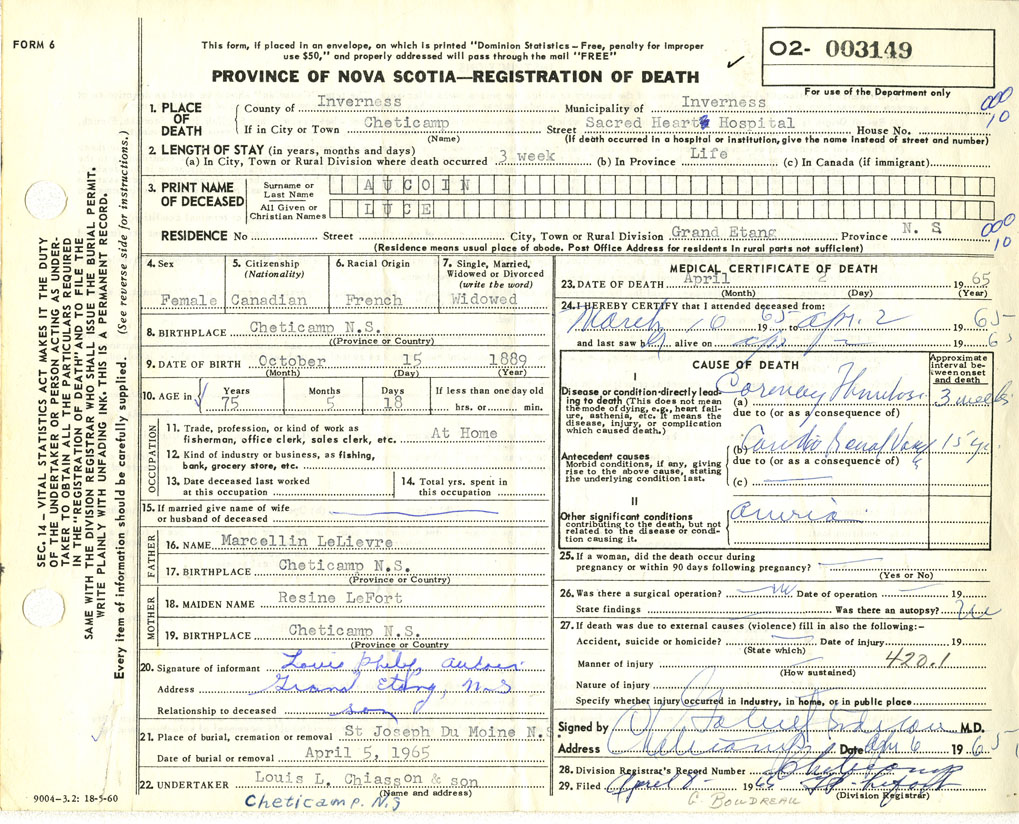 FORM 6
This form, if placed in an envelope, on which is printed "Dominion Statistics – Free, penalty for improper
use $50," and properly addressed will pass through the mail "FREE"
PROVINCE OF NOVA SCOTIA—REGISTRATION OF DEATH
O2- 003149
For use of the Department only
SEC. 14 — VITAL STATISTICS ACT MAKES IT THE DUTY
OF THE UNDERTAKER OR PERSON ACTING AS UNDER-
TAKER TO OBTAIN ALL THE PARTICULARS REQUIRED
IN THE "REGISTRATION OF DEATH" AND TO FILE THE
SAME WITH THE DIVISION REGISTRAR WHO SHALL ISSUE THE BURIAL PERMIT.
WRITE PLAINLY WITH UNFADING INK. THIS IS A PERMANENT RECORD.
Every item of information should be carefully supplied. (See reverse side for instructions.)
1. PLACE OF DEATH
County of Inverness Municipality of Inverness
000
10
If in City or Town Cheticamp Street Sacred Heart Hospital House No.
(Name) (If death occurred in a hospital or institution, give the name instead of street and number)
2. LENGTH OF STAY (in years, months and days)
(a) In City, Town or Rural Division where death occurred 3 week (b) In Province Life (c) In Canada (if immigrant)
3. PRINT NAME OF DECEASED
Surname or Last Name AUCOIN
All Given or Christian Names LUCE
RESIDENCE No Street City, Town or Rural Division Grand Etang Province N. S.
000
10
(Residence means usual place of abode. Post Office Address for residents in rural parts not sufficient)
4. Sex
Female
5. Citizenship
(Nationality)
Canadian
6. Racial Origin
French
7. Single, Married,
Widowed or Divorced
(write the word)
Widowed
8. BIRTHPLACE Cheticamp N.S.
((Province or Country)
9. DATE OF BIRTH October 15 1889
(Month) (Day) (Year)
10. AGE in
Years Months Days If less than one day old
75 5 18 hrs. or min.
OCCUPATION
11. Trade, profession, or kind of work as At Home
fisherman, office clerk, sales clerk, etc.
12. Kind of industry or business, as fishing,
bank, grocery store, etc.
13. Date deceased last worked
at this occupation
14. Total yrs. spent in
this occupation
15. If married give name of wife
or husband of deceased
FATHER
16. NAME Marcellin LeLievre
17. BIRTHPLACE Cheticamp N.S.
(Province or Country)
MOTHER
18. MAIDEN NAME Resine LeFort
19. BIRTHPLACE Cheticamp N.S.
(Province or Country)
20. Signature of informant Louis Philip Aucoin
Address Grand Etang, N.S
Relationship to deceased son
21. Place of burial, cremation or removal St Joseph Du Moine N.S
Date of burial or removal April 5, 1965
22. UNDERTAKER Louis L. Chiasson & son
(Name and address)
Cheticamp. N.S
9004-3.2: 18-5-60
MEDICAL CERTIFICATE OF DEATH
23. DATE OF DEATH April 2 1965
(Month) (Day) (Year)
24. I HEREBY CERTIFY that I attended deceased from:
March 10 1965 to apr. 2 65
and last saw h alive on apr 2 1965
CAUSE OF DEATH
Approximate
interval be-
tween onset
and death
I
Disease or condition directly lead-
ing to death (This does not mean
the mode of dying, e.g., heart fail-
ure, asthenia, etc. It means the
disease, injury, or complication
which caused death.)
(a) Coronary Thrombosis 3 weeks
due to (or as a consequence of)
Antecedent causes
Morbid conditions, if any, giving
rise to the above cause, stating
the underlying condition last.
(b) Cardio Renal Vasc 15 yr.
due to (or as a consequence of)
(c)
II
Other significant conditions
contributing to the death, but not
related to the disease or condi-
tion causing it.
25. If a woman, did the death occur during
pregnancy or within 90 days following pregnancy?
(Yes or No)
26. Was there a surgical operation? Date of operation 19
State findings Was there an autopsy?
27. If death was due to external causes (violence) fill in also the following:–
Accident, suicide or homicide? Date of injury 19
(State which)
420.1
Manner of injury
(How sustained)
Nature of injury
Specify whether injury occurred in industry, in home, or in public place
Signed by M.D.
Address Cheticamp Date Apr 6 1965
28. Division Registrar's Record Number
29. Filed April 8 1965
(Division Registrar)
G. BOUDREAU